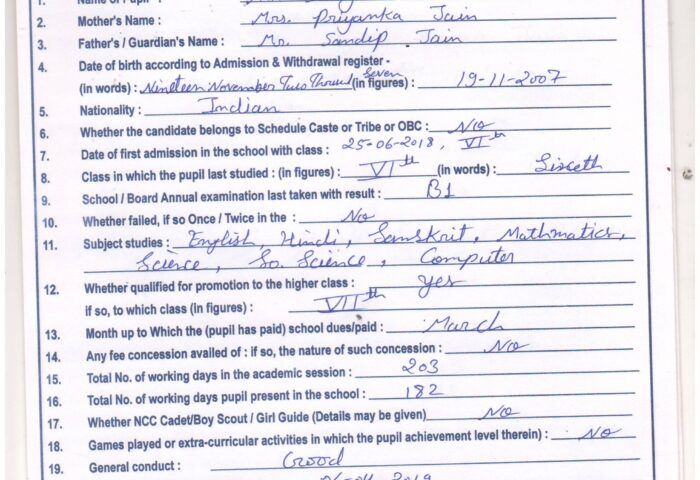 1. Name of Pupil :
2. Mother's Name : Mrs. Priyanka Jain
3. Father's / Guardian's Name : Mr. Sandip Jain
4. Date of birth according to Admission & Withdrawal register -
(in words) : Nineteen November Two Thousand Seven (in figures) : 19-11-2007
5. Nationality : Indian
6. Whether the candidate belongs to Schedule Caste or Tribe or OBC : No
7. Date of first admission in the school with class : 25-06-2018, VIth
8. Class in which the pupil last studied : (in figures) : VIth (in words) : Sixeth
9. School / Board Annual examination last taken with result : B1
10. Whether failed, if so Once / Twice in the : No
11. Subject studies : English, Hindi, Sanskrit, Mathmatics,
Science, So. Science, Computer
12. Whether qualified for promotion to the higher class : yes
if so, to which class (in figures) : VIIth
13. Month up to Which the (pupil has paid) school dues/paid : March
14. Any fee concession availed of : if so, the nature of such concession : No
15. Total No. of working days in the academic session : 203
16. Total No. of working days pupil present in the school : 182
17. Whether NCC Cadet/Boy Scout / Girl Guide (Details may be given) No
18. Games played or extra-curricular activities in which the pupil achievement level therein) : No
19. General conduct : Good